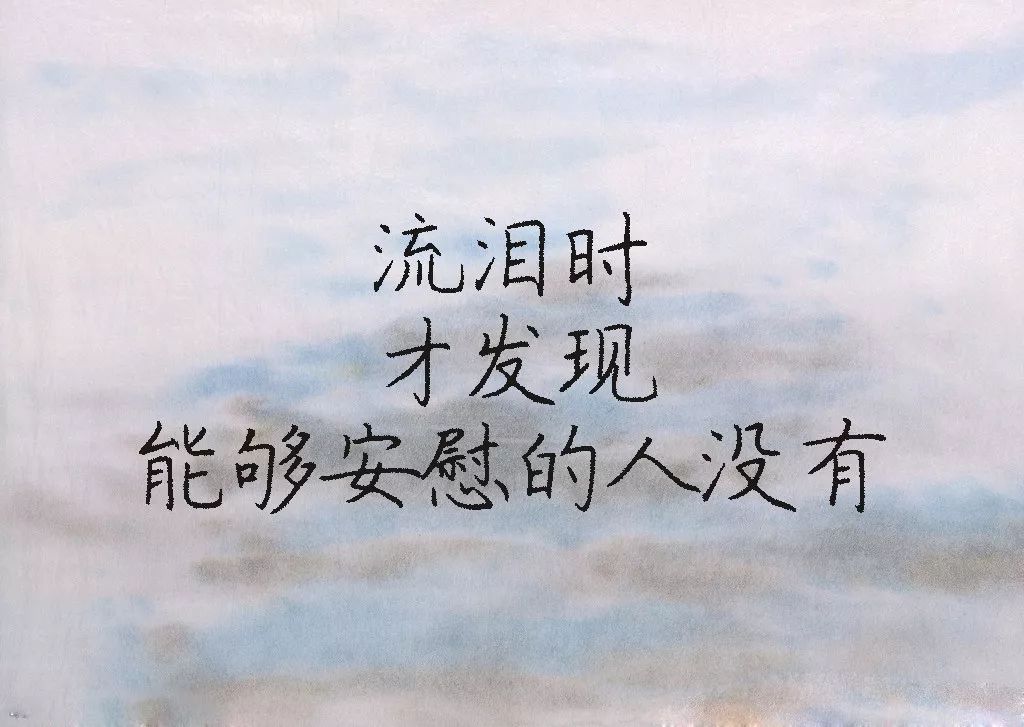 流泪时
才发现
能够安慰的人没有